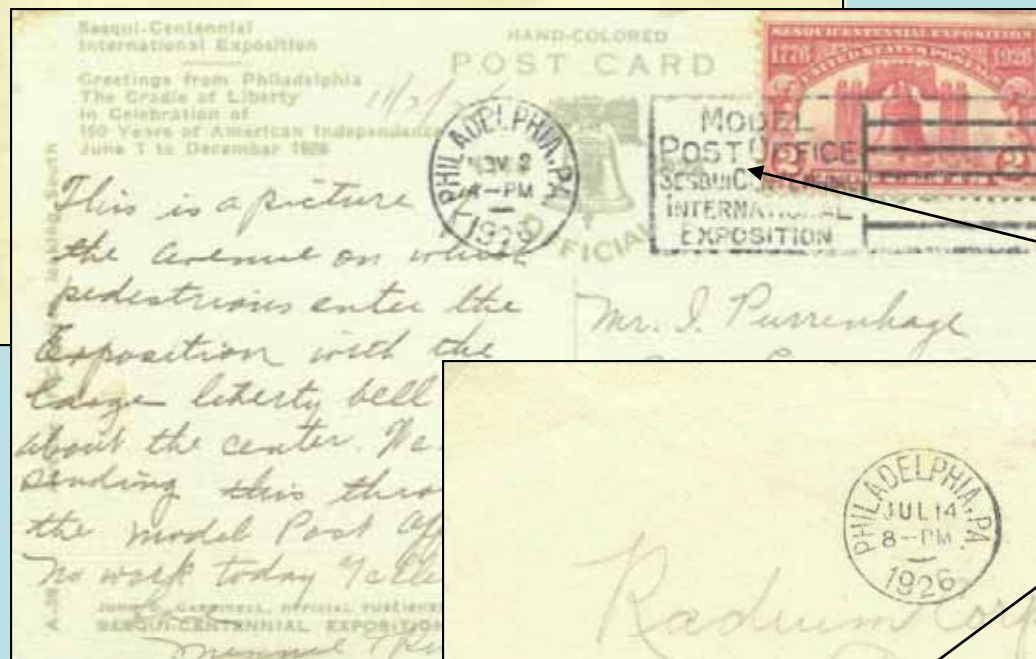 Sesqui-Centennial
International Exposition
Greetings from Philadelphia
The Cradle of Liberty
in Celebration of
150 Years of American Independence
June 1 to December 1926
HAND-COLORED
POST CARD
11/2/
PHILADELPHIA, PA.
NOV 2
4-PM
1926
OFFICIAL
MODEL
POST OFFICE
SESQUICENTENNIAL
INTERNATIONAL
EXPOSITION
SESQUICENTENNIAL EXPOSITION
1776 1926
UNITED STATES POSTAGE
2 2
This is a picture
the avenue on which
pedestrians enter the
Exposition with the
large liberty bell
about the center.
sending this
the model Post Off
No work today
looking South
A-36
OFFICIAL PUBLISHER
SESQUI-CENTENNIAL EXPOSITION
Mr. I. Purrenhage
PHILADELPHIA, PA.
JUL 14
8-PM
1926
Radium